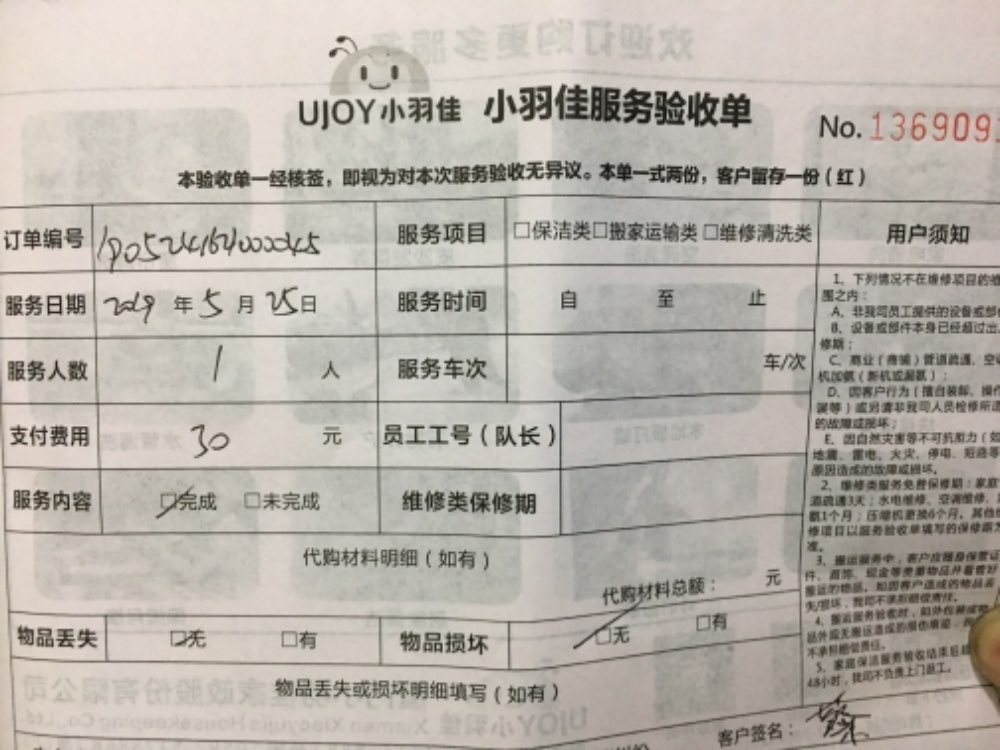 UJOY小羽佳 小羽佳服务验收单
No. 136909
本验收单一经核签，即视为对本次服务验收无异议。本单一式两份，客户留存一份（红）
订单编号 1905241641000045 服务项目 □保洁类□搬家运输类□维修清洗类 用户须知
服务日期 2019 年 5 月 25 日 服务时间 自 至 止
服务人数 1 人 服务车次 车/次
支付费用 30 元 员工工号（队长）
服务内容 □完成 □未完成 维修类保修期
代购材料明细（如有）
代购材料总额： 元
物品丢失 □无 □有 物品损坏 □无 □有
物品丢失或损坏明细填写（如有）
客户签名：
1、下列情况不在维修项目的
围之内：
A、非我司员工提供的设备或部
B、设备或部件本身已经超过出
修期；
C、商业（商铺）管道疏通、空
机加氨（新机或漏氨）；
D、因客户行为（擅自装卸、操
误等）或另请非我司人员检修所
的故障或损坏；
E、因自然灾害等不可抗拒力（如
地震、雷电、火灾、停电、短路等
原因造成的故障或损坏。
2、维修类服务免费保修期：家庭
道疏通3天；水电维修、空调维修、
氨1个月；压缩机更换6个月。其他
修项目以服务验收单填写的保修期为
准。
3、搬运服务中，客户应随身保管证
件、首饰、现金等贵重物品并看管好
搬运的物品。如因客户造成的物品丢
失/损坏，我司不承担赔偿责任。
4、搬运服务验收时，如外包装或
品外观无搬运造成的损伤痕迹，
不承担赔偿责任。
5、家庭保洁服务验收结束后超
48小时，我司不负责上门返工。